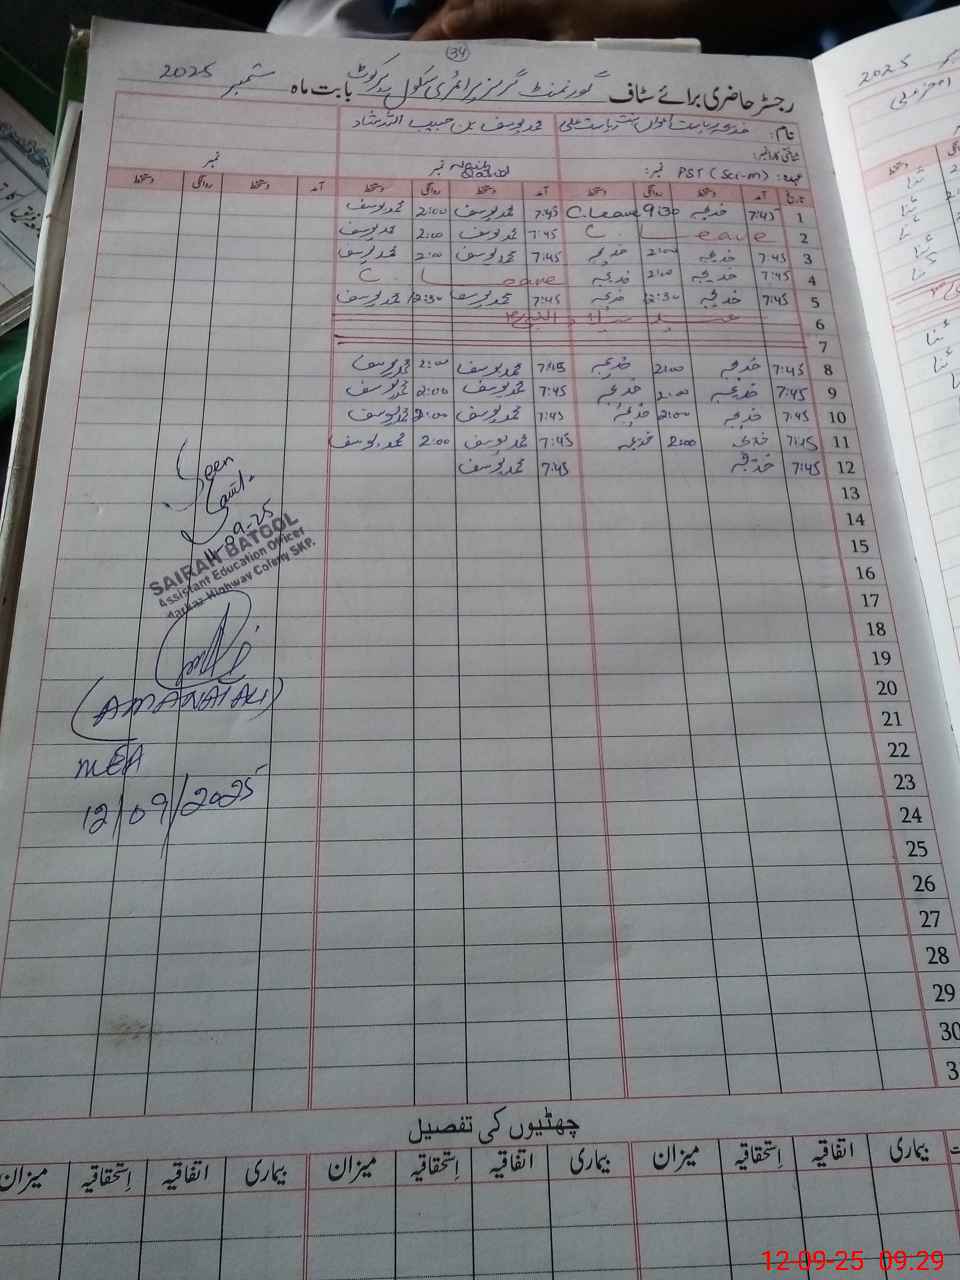 34
رجسٹر حاضری برائے سٹاف گورنمنٹ گرلز پرائمری سکول بابت ماہ ستمبر 2025
نام: محمد یوسف بن حبیب اللہ
عہدہ: PST (Sci-M) نمبر: نمبر نمبر
تاریخ آمد دستخط روانگی دستخط آمد دستخط روانگی دستخط آمد دستخط روانگی دستخط
1 7:45 خدیجہ 9:30 C.Leave 7:45 محمد یوسف 2:00 محمد یوسف
2 C. Leave 7:45 محمد یوسف 2:00 محمد یوسف
3 7:45 خدیجہ 2:00 خدیجہ 7:45 محمد یوسف 2:00 محمد یوسف
4 7:45 خدیجہ 2:00 خدیجہ C. Leave
5 7:45 خدیجہ 12:30 خدیجہ 7:45 محمد یوسف 12:30 محمد یوسف
6
7
8 7:45 خدیجہ 2:00 خدیجہ 7:45 محمد یوسف 2:00 محمد یوسف
9 7:45 خدیجہ 2:00 خدیجہ 7:45 محمد یوسف 2:00 محمد یوسف
10 7:45 خدیجہ 2:00 خدیجہ 7:45 محمد یوسف 2:00 محمد یوسف
11 7:45 خدیجہ 2:00 خدیجہ 7:45 محمد یوسف 2:00 محمد یوسف
12 7:45 خدیجہ 7:45 محمد یوسف
13
14
15
16
17
18
19
20
21
22
23
24
25
26
27
28
29
30
Seen
09-25
SAIRAH BATOOL
Assistant Education Officer
Markaz Highway Colony SKP.
(AMANAT ALI)
MEA
12/09/2025
چھٹیوں کی تفصیل
بیماری اتفاقیہ اِستحقاقیہ میزان بیماری اتفاقیہ اِستحقاقیہ میزان بیماری اتفاقیہ اِستحقاقیہ میزان
2025
12-09-25 09.29